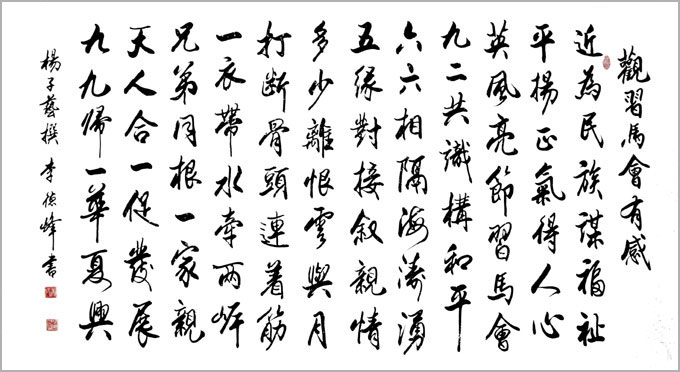 觀習馬會有感
近為民族謀福祉
平揚正氣得人心
英風亮節習馬會
九二共識構和平
六六相隔海濤湧
五緣對接叙親情
多少離恨雲與月
打斷骨頭連着筋
一衣帶水牽兩岸
兄弟同根一家親
天人合一促發展
九九歸一華夏興
楊子藝撰 李德峰書